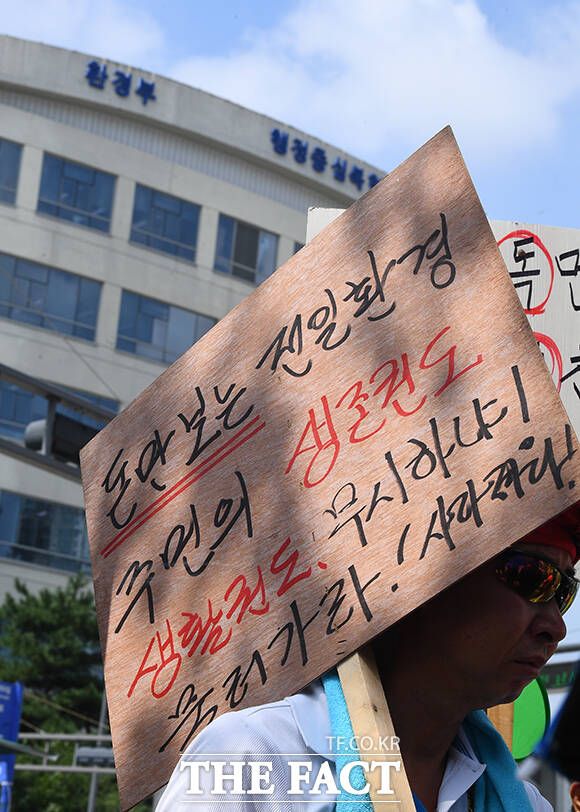 환경부
행정중심복합
돈만보는 전일환경
주민의 생존권도
생활권도, 무시하냐!
물러가라! 사라져라!
독
TF.CO.KR
THE FACT